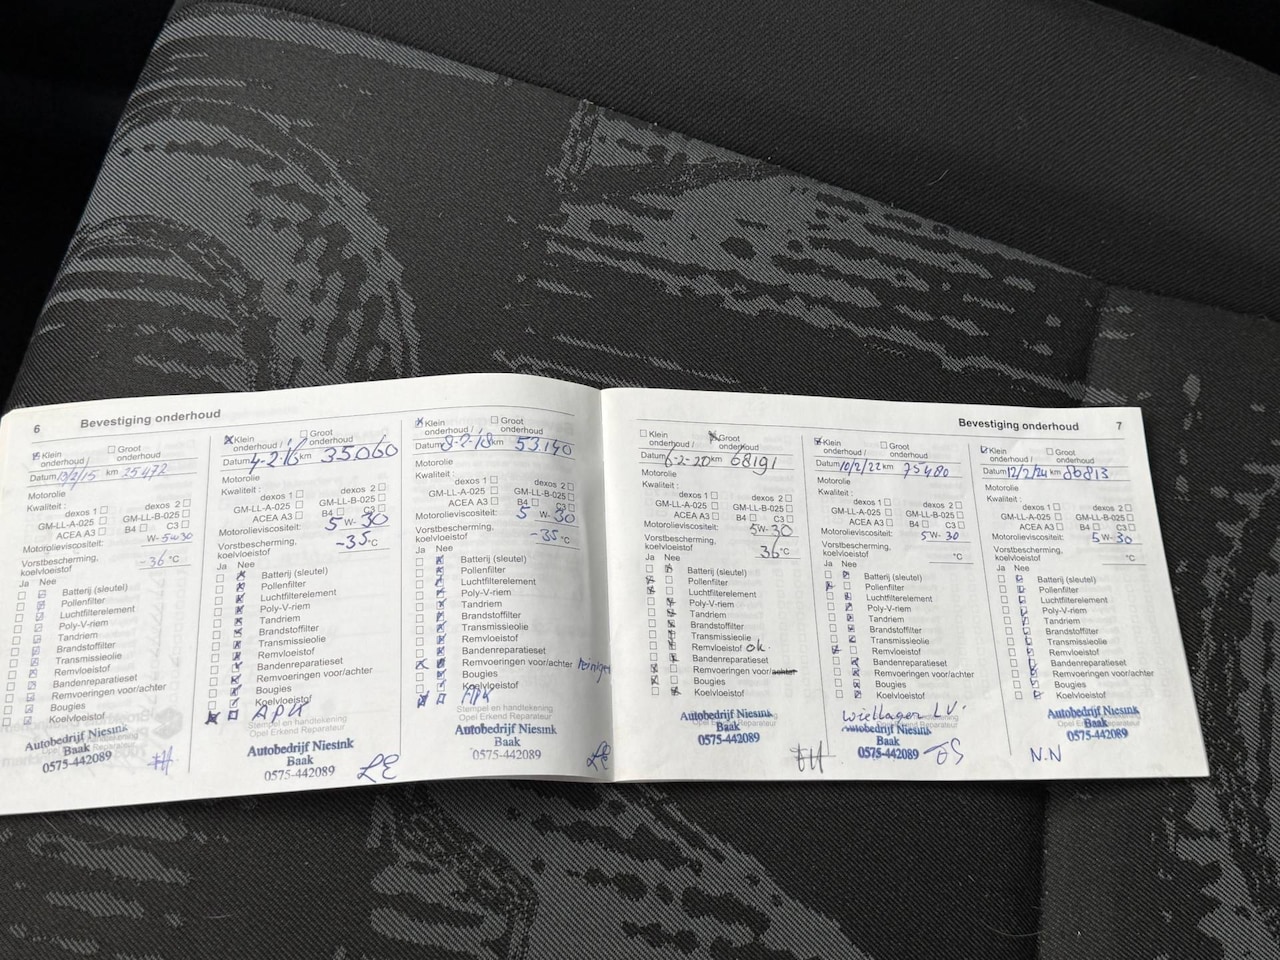 6 Bevestiging onderhoud
Klein onderhoud / Groot onderhoud
Datum 10/2/15 km 25472
Motorolie
Kwaliteit :
dexos 1 dexos 2
GM-LL-A-025 GM-LL-B-025
ACEA A3 B4 C3
Motorolieviscositeit: W-5w30
Vorstbescherming, koelvloeistof -36 °C
Ja Nee
Batterij (sleutel)
Pollenfilter
Luchtfilterelement
Poly-V-riem
Tandriem
Brandstoffilter
Transmissieolie
Remvloeistof
Bandenreparatieset
Remvoeringen voor/achter
Bougies
Koelvloeistof
Autobedrijf Niesink
Baak
0575-442089
Klein onderhoud / Groot onderhoud
Datum 4-2-'16 km 35060
Motorolie
Kwaliteit :
dexos 1 dexos 2
GM-LL-A-025 GM-LL-B-025
ACEA A3 B4 C3
Motorolieviscositeit: 5 W- 30
Vorstbescherming, koelvloeistof -35 °C
Ja Nee
Batterij (sleutel)
Pollenfilter
Luchtfilterelement
Poly-V-riem
Tandriem
Brandstoffilter
Transmissieolie
Remvloeistof
Bandenreparatieset
Remvoeringen voor/achter
Bougies
Koelvloeistof
APK
Stempel en handtekening
Opel Erkend Reparateur
Autobedrijf Niesink
Baak
0575-442089
Klein onderhoud / Groot onderhoud
Datum 8-2-'18 km 53.140
Motorolie
Kwaliteit :
dexos 1 dexos 2
GM-LL-A-025 GM-LL-B-025
ACEA A3 B4 C3
Motorolieviscositeit: 5 W- 30
Vorstbescherming, koelvloeistof -35 °C
Ja Nee
Batterij (sleutel)
Pollenfilter
Luchtfilterelement
Poly-V-riem
Tandriem
Brandstoffilter
Transmissieolie
Remvloeistof
Bandenreparatieset
Remvoeringen voor/achter
Bougies
Koelvloeistof
APK
Stempel en handtekening
Opel Erkend Reparateur
Autobedrijf Niesink
Baak
0575-442089
Bevestiging onderhoud 7
Klein onderhoud / Groot onderhoud
Datum 6-2-20 km 68191
Motorolie
Kwaliteit :
dexos 1 dexos 2
GM-LL-A-025 GM-LL-B-025
ACEA A3 B4 C3
Motorolieviscositeit: 5 W- 30
Vorstbescherming, koelvloeistof 36 °C
Ja Nee
Batterij (sleutel)
Pollenfilter
Luchtfilterelement
Poly-V-riem
Tandriem
Brandstoffilter
Transmissieolie
Remvloeistof ok.
Bandenreparatieset
Remvoeringen voor/achter
Bougies
Koelvloeistof
Autobedrijf Niesink
Baak
0575-442089
Klein onderhoud / Groot onderhoud
Datum 10/2/22 km 75480
Motorolie
Kwaliteit :
dexos 1 dexos 2
GM-LL-A-025 GM-LL-B-025
ACEA A3 B4 C3
Motorolieviscositeit: 5 W- 30
Vorstbescherming, koelvloeistof °C
Ja Nee
Batterij (sleutel)
Pollenfilter
Luchtfilterelement
Poly-V-riem
Tandriem
Brandstoffilter
Transmissieolie
Remvloeistof
Bandenreparatieset
Remvoeringen voor/achter
Bougies
Koelvloeistof
Wiellager LV.
Autobedrijf Niesink
Baak
0575-442089
Klein onderhoud / Groot onderhoud
Datum 12/2/24 km 86813
Motorolie
Kwaliteit :
dexos 1 dexos 2
GM-LL-A-025 GM-LL-B-025
ACEA A3 B4 C3
Motorolieviscositeit: 5 W- 30
Vorstbescherming, koelvloeistof °C
Ja Nee
Batterij (sleutel)
Pollenfilter
Luchtfilterelement
Poly-V-riem
Tandriem
Brandstoffilter
Transmissieolie
Remvloeistof
Bandenreparatieset
Remvoeringen voor/achter
Bougies
Koelvloeistof
Autobedrijf Niesink
Baak
0575-442089
N.N